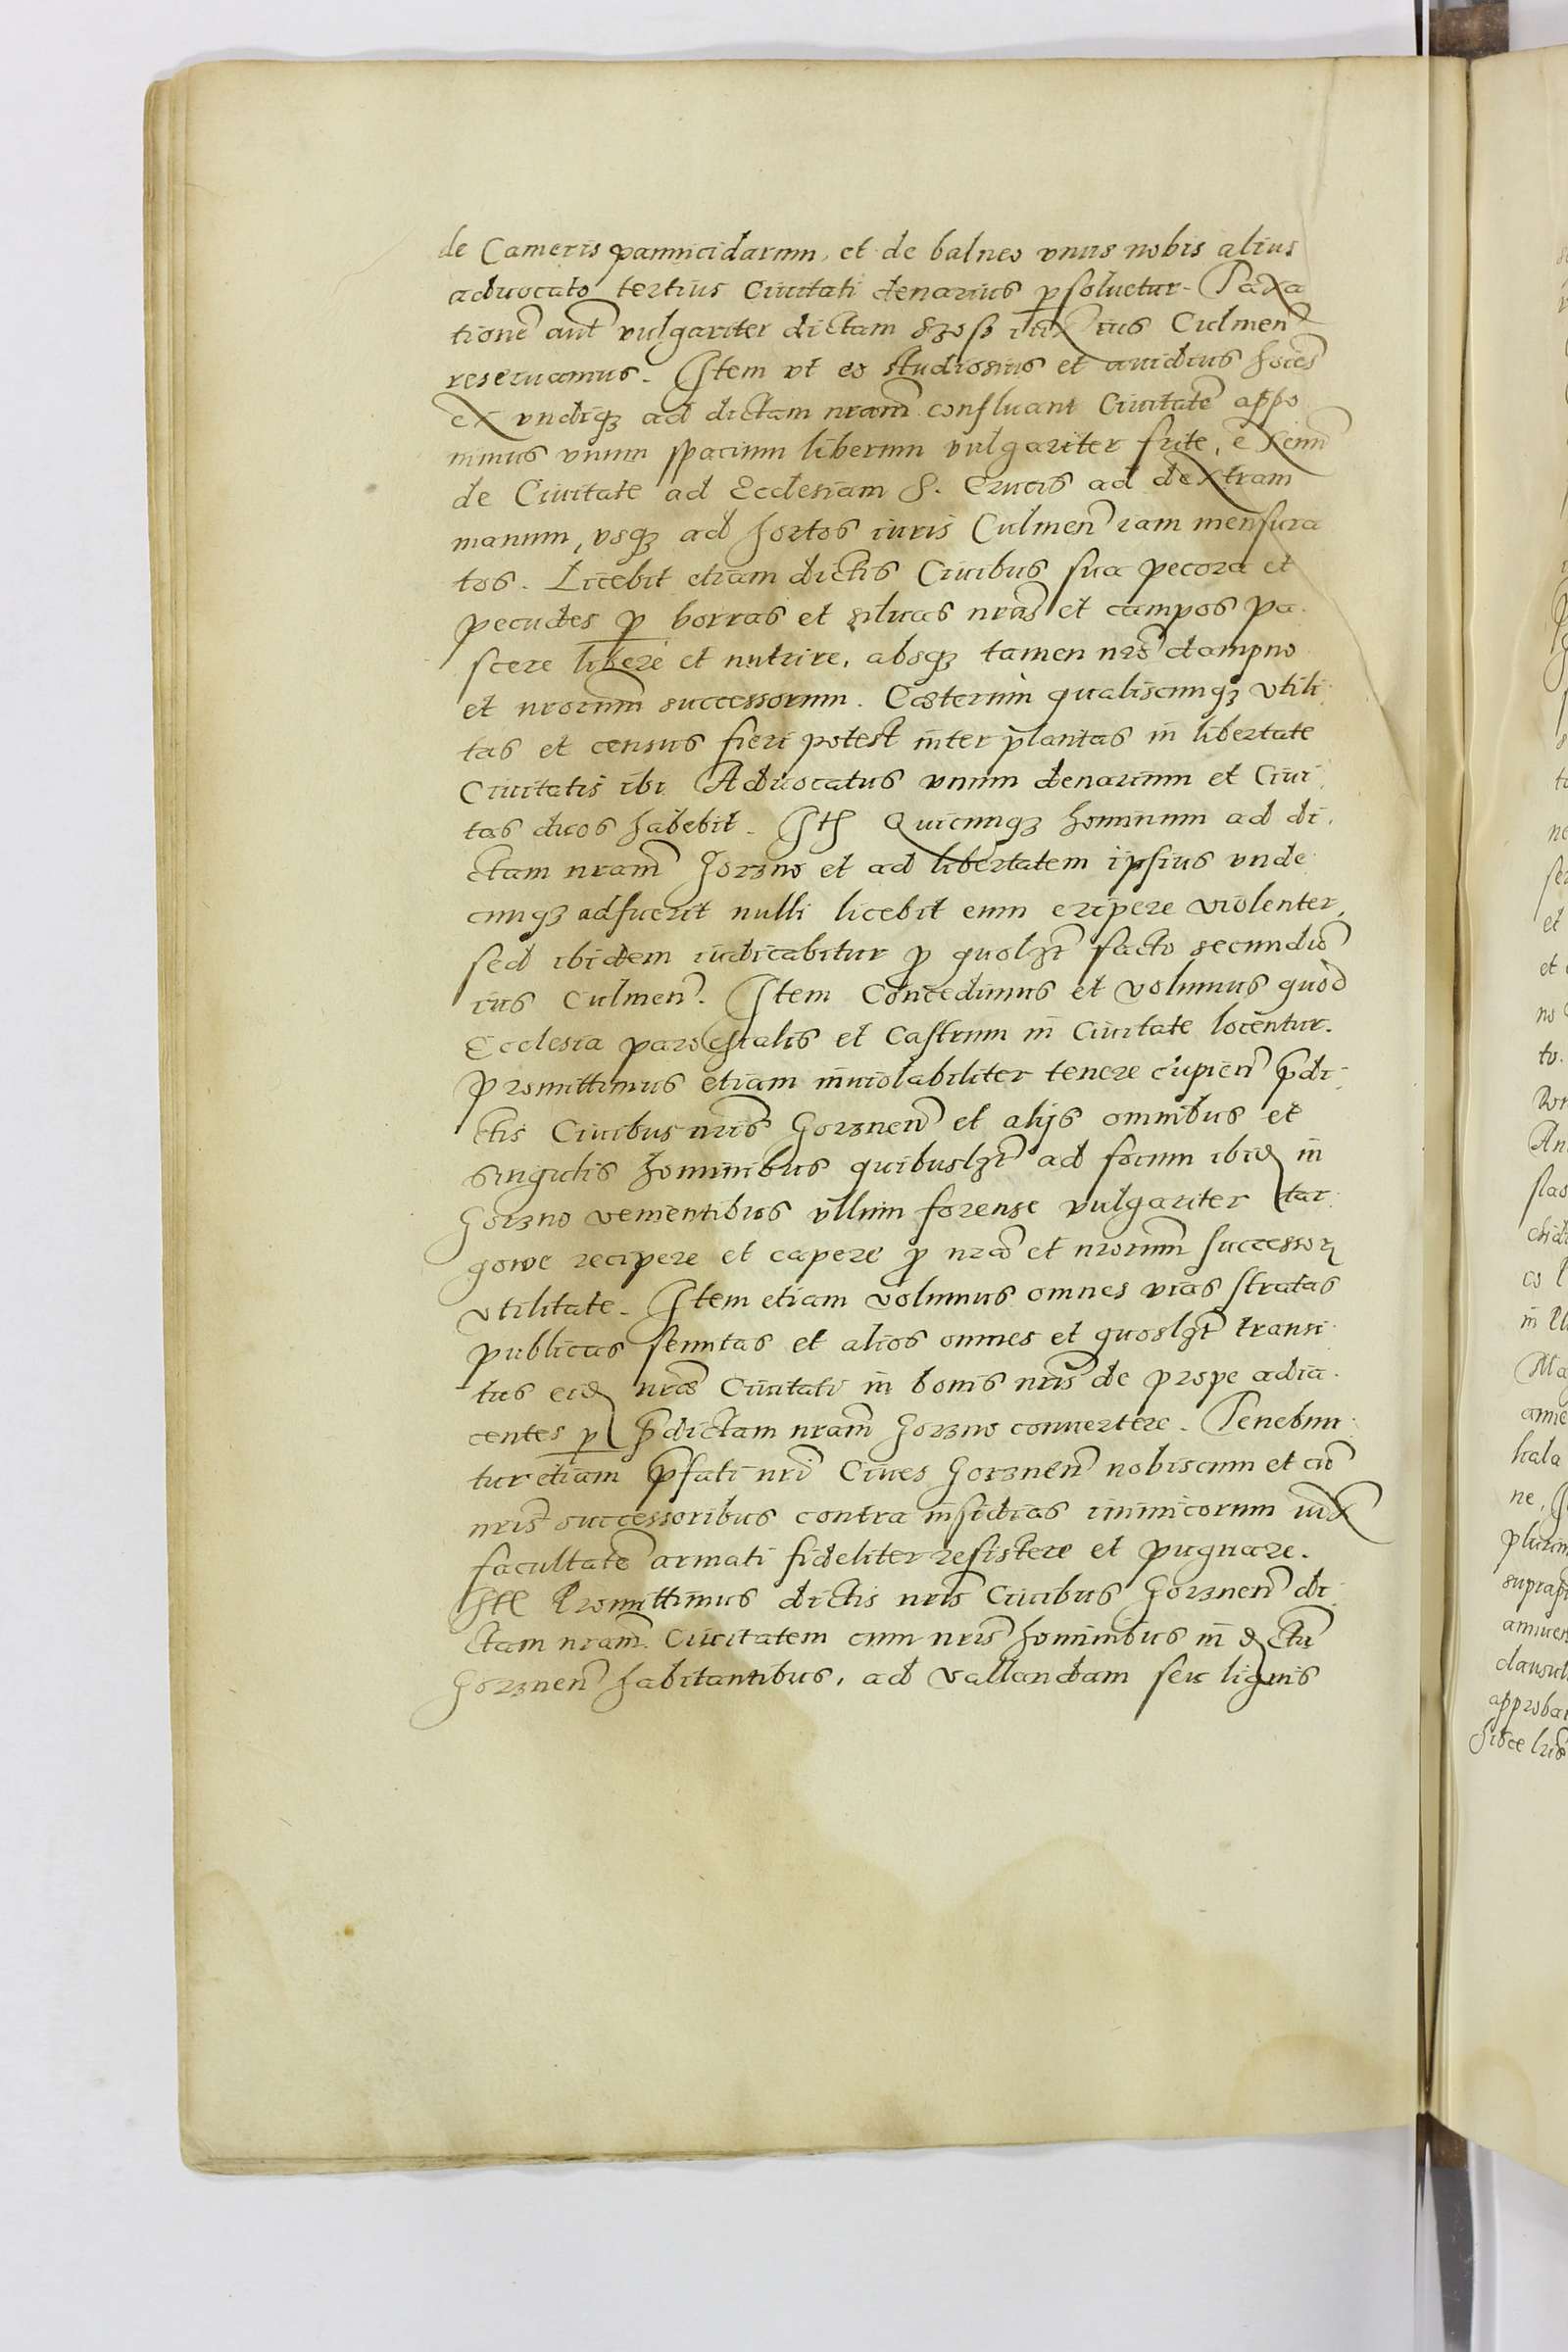 de Cameris pannicidarum, et de balneo vnus nobis alius
aduocato tertius Ciuitati denarius ꝑsoluetur. Taxa
tionē aut̃ vulgariter dictam szosz iux̃ ius Culmeñ
reseruamus. Item vt eo studiosius et auidius hoīes
ex vndiqꝫ ad dictam nram̃ confluant Ciuitatē appo
nimus vnum spacium liberum vulgariter frite, exeuñ
de Ciuitate ad Ecclesiam S. Crucis ad dextram
manum, vsqꝫ ad hortos iuris Culmeñ iam mensura
tos. Licebit etiam dictis Ciuibus sua pecora et
pecudes ꝑ borras et siluas nras̃ et campos pa
scere libere et nutrire, absqꝫ tamen nrõ dampno
et nrorum̃ successorum. Cæterum qualiscunqꝫ vtili
tas et census fieri potest inter plantas in libertate
Ciuitatis ibi Aduocatus vnum denarium et Ciui
tas duos habebit. Itẽ Quicunqꝫ hominum ad di
ctam nram̃ Gorzno et ad libertatem ipsius vnde
cunqꝫ adfuerit nulli licebit eum eripere violenter,
sed ibidem iudicabitur ꝓ quolꝫt̃ facto secundũ
ius Culmeñ. Item Concedimus et volumus quod
Ecclesia parochialis et Castrum in Ciuitate locentur.
Promittimus etiam inuiolabiliter tenere cupieñ p̃di
ctis Ciuibus nris̃ Gorzneñ et alijs omnibus et
singulis hominibus quibuslꝫt̃ ad forum ibid̃ in
Gorzno venientibus vllum forense vulgariter tar
gowe recipere et capere ꝓ nrã et nrorum̃ successoꝝ
vtilitate. Item etiam volumus omnes vias stratas
publicas semitas et alios omnes et quoslꝫt̃ transi
tus eid̃ nræ̃ Ciuitati in bonis nris̃ de prope adia
centes ꝑ p̃dictam nram̃ Gorzno conuertere. Tenebun
tur etiam p̃fati nrĩ Ciues Gorzneñ nobiscum et cũ
nris̃ successoribus contra insidias inimicorum iux̃
facultatẽ armati fideliter resistere et pugnare.
Itẽ Promittimus dictis nris̃ Ciuibus Gorzneñ di
ctam nram̃ Ciuitatem cum nris̃ hominibus in
Gorzneñ habitantibus, ad vallandam seu lignis